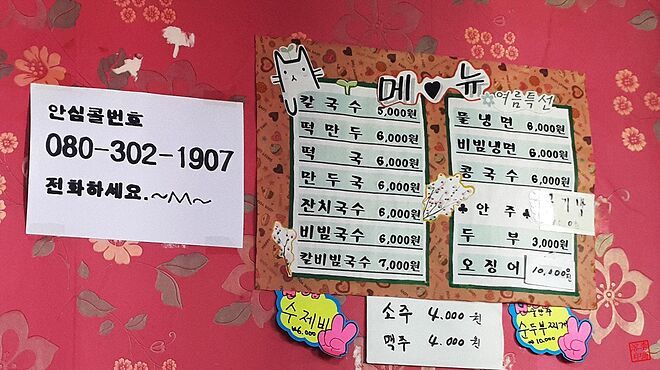 안심콜번호
080-302-1907
전화하세요.~M~
메♥뉴
칼국수 5,000원
떡만두 6,000원
떡국 6,000원
만두국 6,000원
잔치국수 6,000원
비빔국수 6,000원
칼비빔국수 7,000원
여름특선
물냉면 6,000원
비빔냉면 6,000원
콩국수 6,000원
♣안주♣
두부 3,000원
오징어 10,000원
수제비
₩6,000
소주 4.000원
맥주 4.000원
순두부찌개
₩10,000